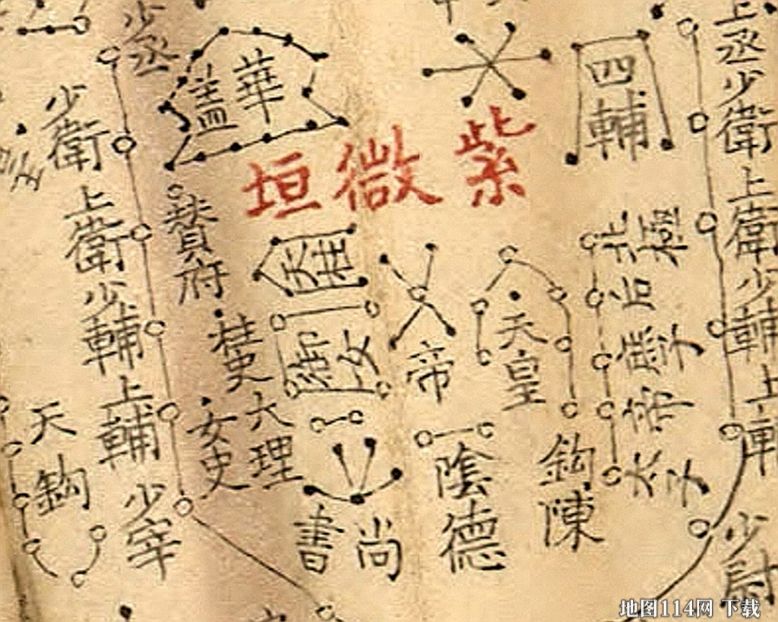 上丞少衛上衛少輔上輔少尉
四輔
紫微垣
華蓋
少丞
少衛上衛少輔上輔少宰
北極
后
庶子
帝
太子
天皇
鈎陳
帝
陰德
天柱
御女
尚書
贊府
柱史
女史
大理
天鈎
地图114网 下载